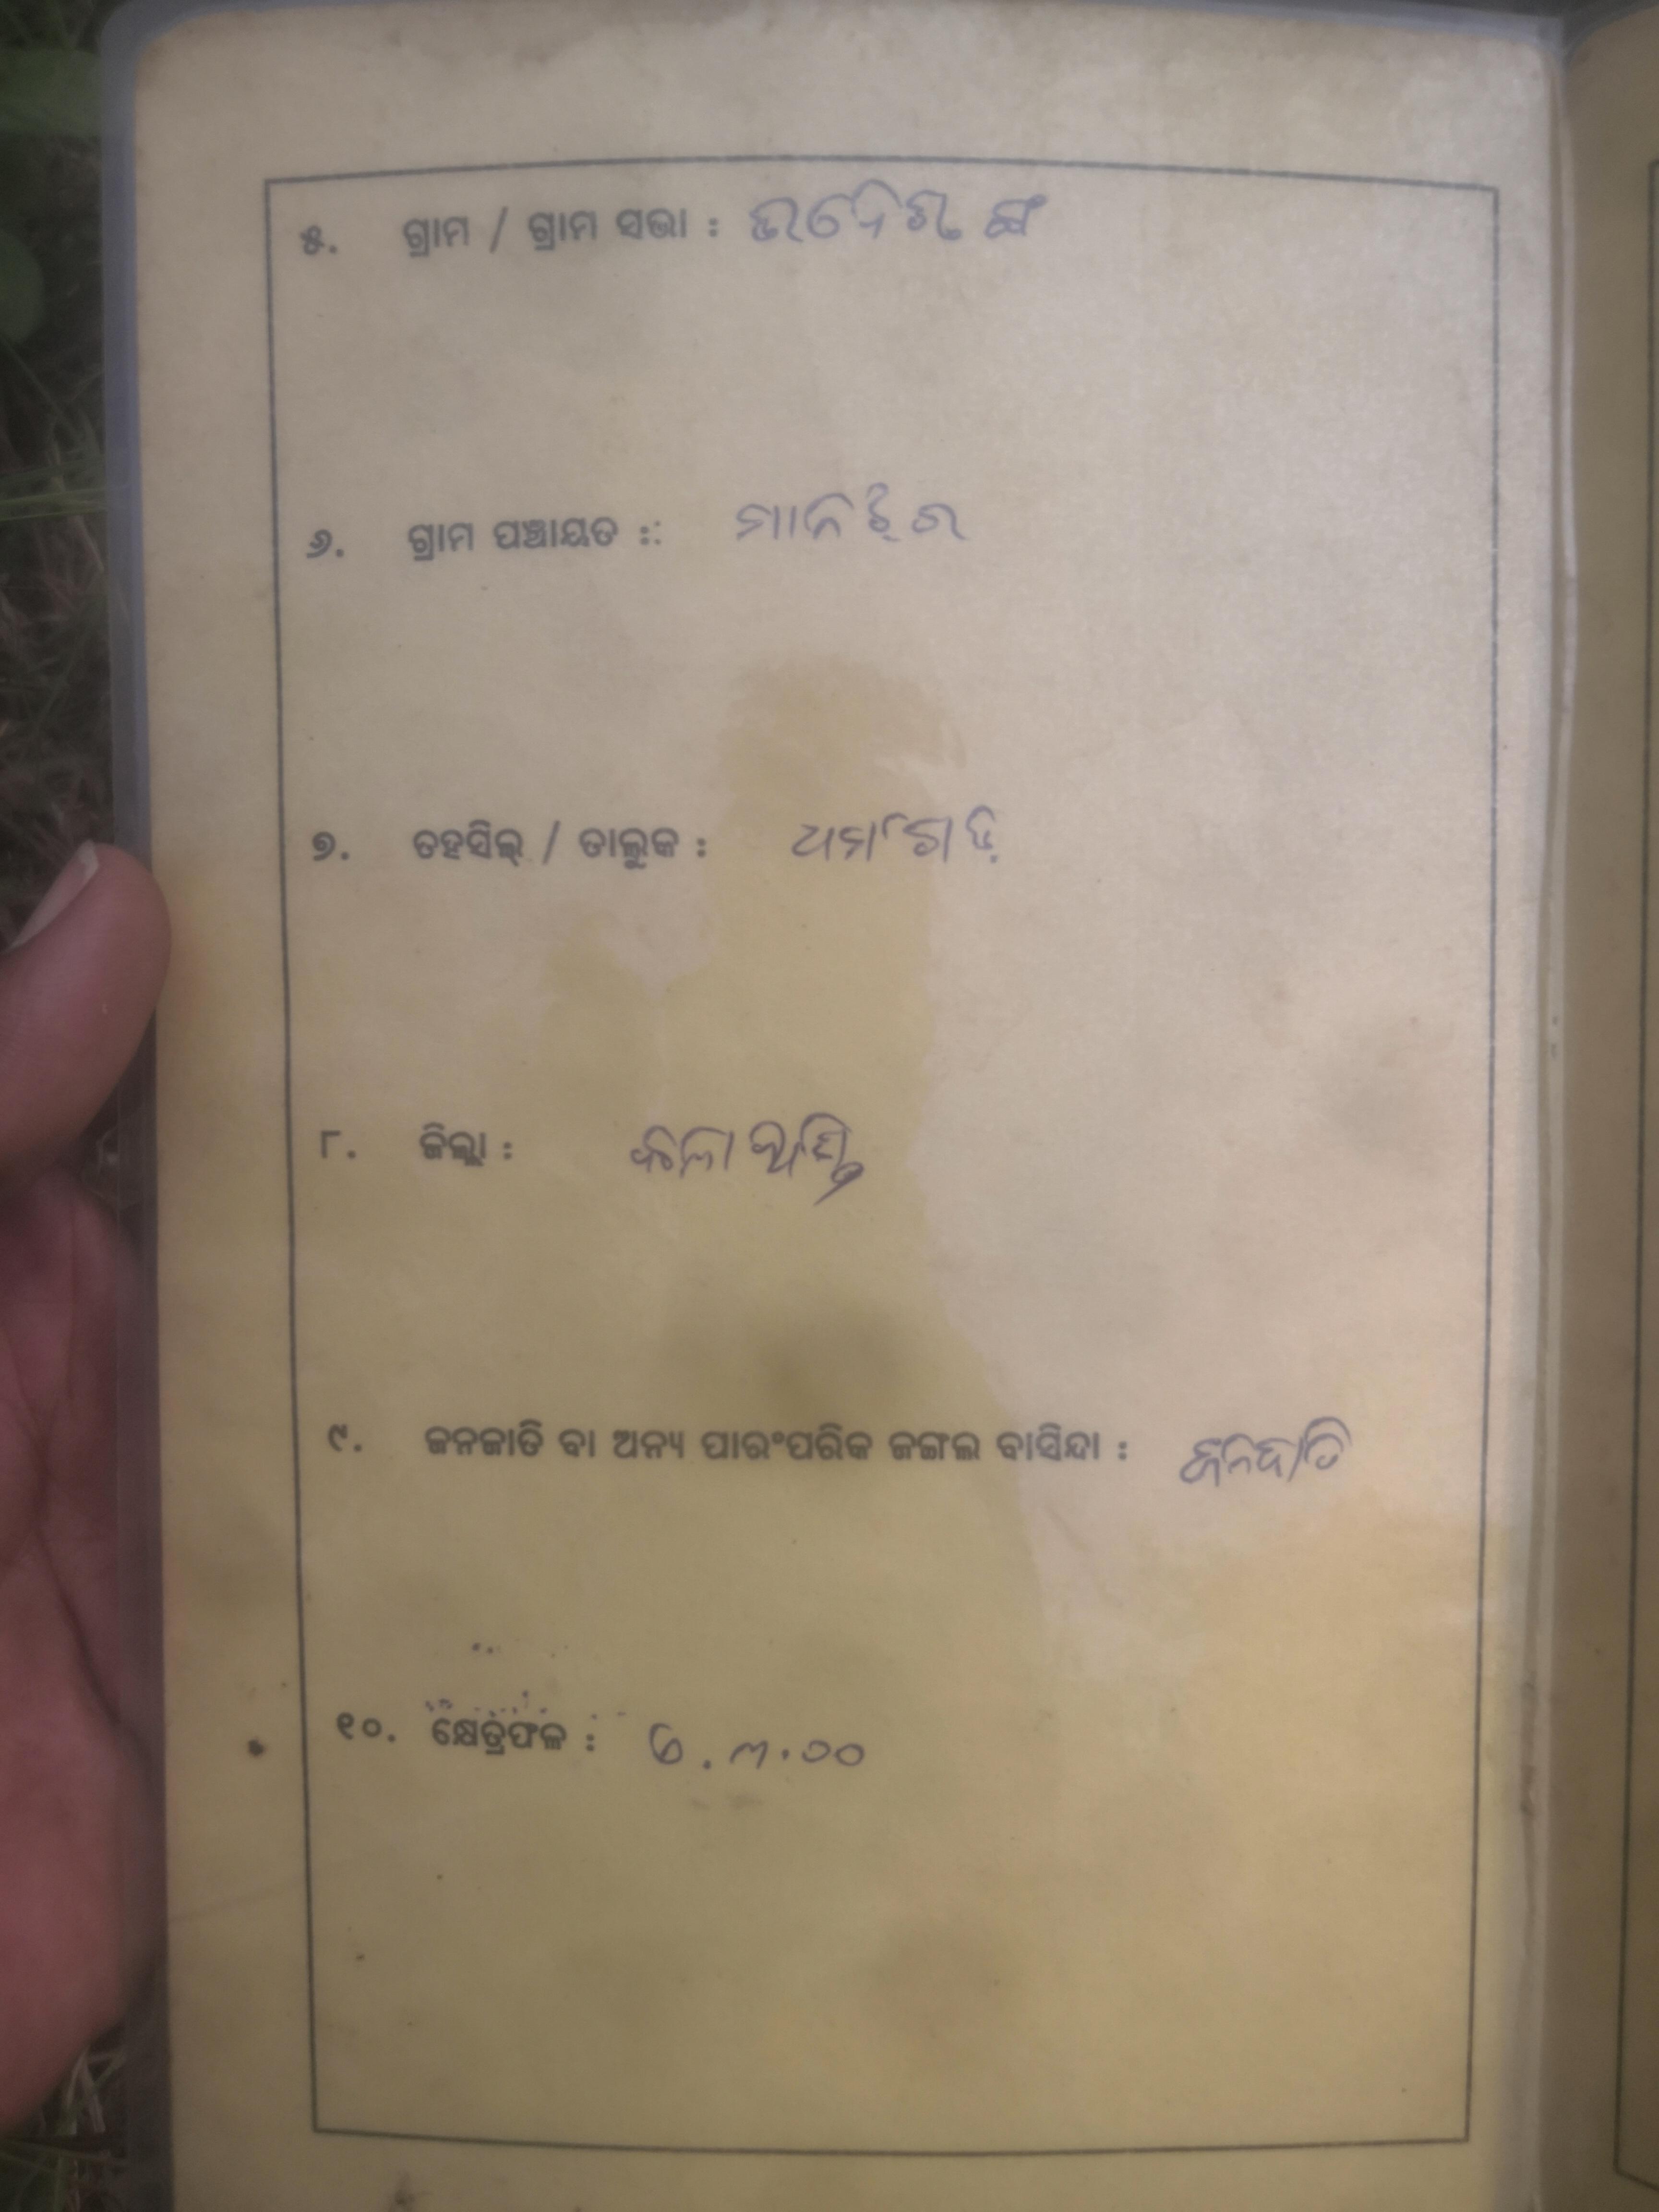 ୫. ଗ୍ରାମ / ଗ୍ରାମ ସଭା :
୬. ଗ୍ରାମ ପଞ୍ଚାୟତ :
୭. ତହସିଲ୍ / ତାଲୁକ : ଧର୍ମଗଡ଼
୮. ଜିଲ୍ଲା : କଳାହାଣ୍ଡି
୯. ଜନଜାତି ବା ଅନ୍ୟ ପାରଂପରିକ ଜଙ୍ଗଲ ବାସିନ୍ଦା : ଜନଜାତି
୧୦. କ୍ଷେତ୍ରଫଳ :